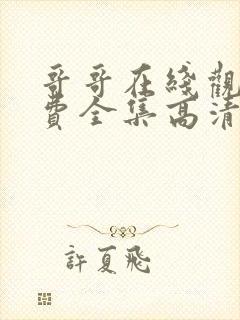 哥哥在綫觀
費全集高清
許夏飛